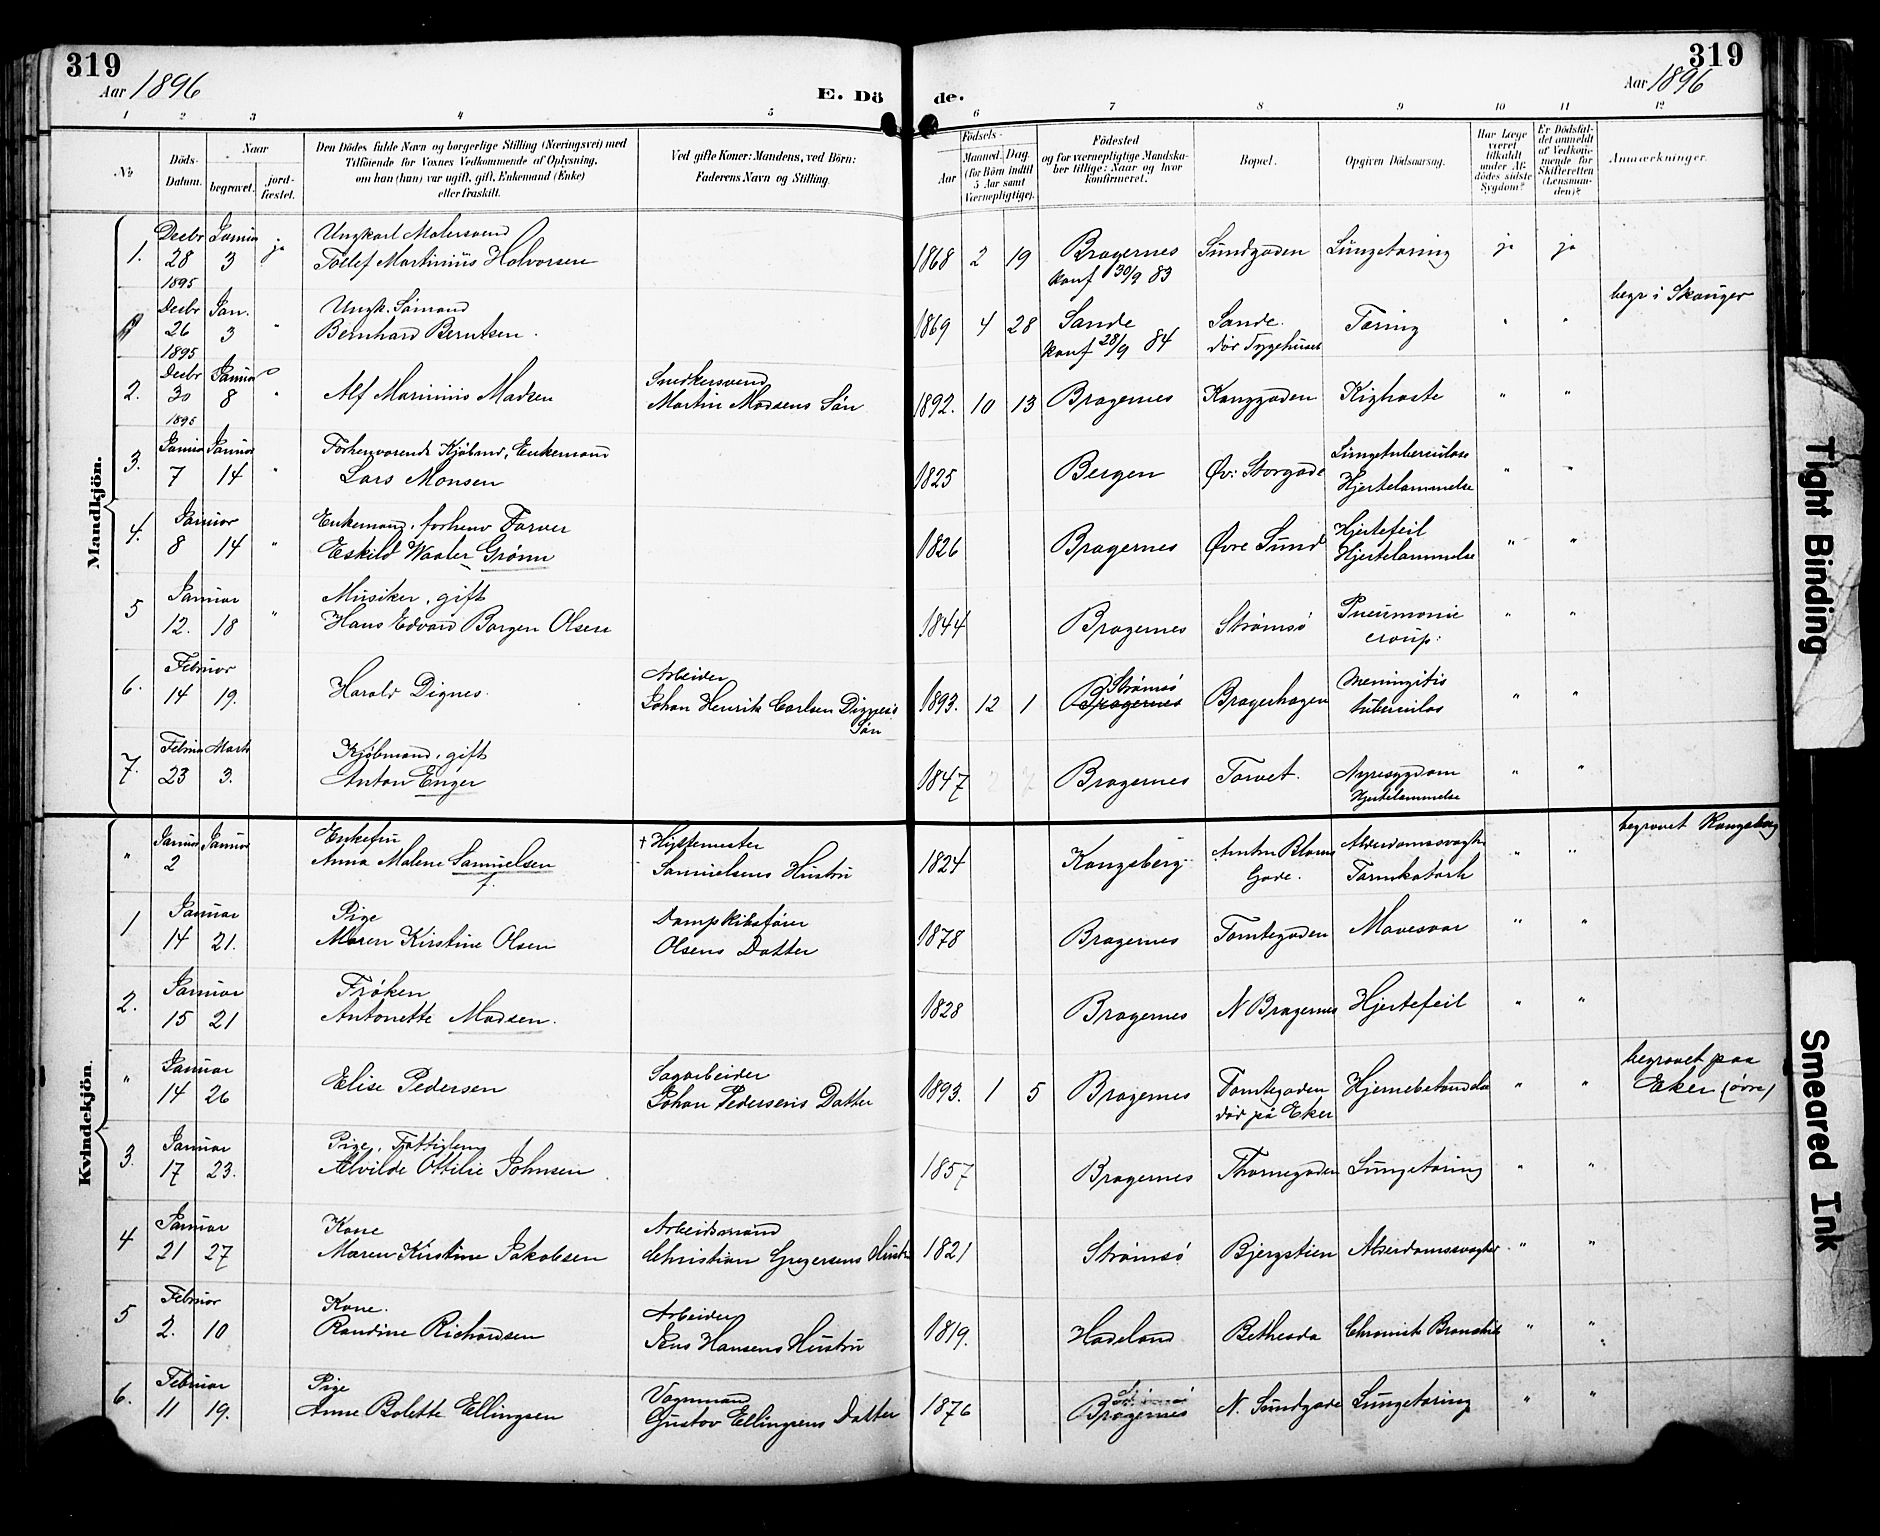 319
Aar 1896
E. Dö
de.
319
Aar 1896
1 2 3 4 5 6 7 8 9 10 11 12
No
Döds-
Datum.
Naar
begravet.
jord-
fæstet.
Den Dödes fulde Navn og borgerlige Stilling (Næringsvei) med
Tilföiende for Voxnes Vedkommende af Oplysning,
om han (hun) var ugift, gift, Enkemand (Enke)
eller fraskilt.
Ved gifte Koner: Mandens, ved Börn:
Faderens Navn og Stilling.
Födsels-
Aar
Maaned. Dag.
(for Börn indtil
5 Aar samt
Værnepligtige).
Födested
og for værnepligtige Mandska-
ber tillige: Naar og hvor
konfirmeret.
Bopæl.
Opgiven Dödsaarsag.
Har Læge
været
tilkaldt
under Af-
dödes sidste
Sygdom?
Er Dödsfal-
det anmeldt
af Vedkom-
mende for
Skifteretten
(Lensman-
den)?
Anmærkninger.
Mandkjön.
1. Decbr 28 1895 Januar 3 ja
Ungkarl Malersvend
Tollef Martinius Halvorsen
1868 2 19 Bragernes
konf 30/9 83
Sundgaden Lungetæring ja ja
Decbr 26 1895 Jan. 3 "
Ungk. Sømand
Bernhard Berntsen.
1869 4 28 Sande
konf 28/9 84
Sande.
dør Sygehuset
Tæring " "
begr i Skouger
2. Decbr 30 1895 Januar 8 "
Alf Marinius Madsen
Snedkersvend
Martin Madsens Søn
1892. 10 13 Bragernes Konggaden Kighoste " "
3. Januar 7 Januar 14 "
Forhenværende Kjøbmd, Enkemand
Lars Monsen
1825 Bergen Øv: Storgade
Lungetuberculose
Hjertelammelse " "
4. Januar 8 14 "
Enkemand, forhenv Farver
Eskild Waaler Grønn
1826 Bragernes Øvre Sund
Hjertefeil
Hjertelammelse " "
5 Januar 12. 18 "
Musiker, gift
Hans Edvard Borgen Olsen
1844 Bragernes Strømsø
Pneumonie
croup: " "
6. Februar 14 19.
Harald Dignes.
Arbeider
Johan Henrik Carlsen Dignes's
Søn
1893. 12 1 Strømsø
Bragernes
Bragerhagen
Meningitis
tuberculos " "
7. Februar 23 Marts 3.
Kjøbmand, gift
Anton Enger
1847 2 7 Bragernes Torvet.
Nyresygdom
Hjertelammelse " "
Kvindekjön.
" Januar 2 Januar
Enkefru
Anna Malene Samuelsen
f.
+ Hyttemester
Samuelsens Hustru
1824 Kongsberg
Gade.
Alderdomssvaghed
Tarmkatarh " "
begravet Kongsberg
1 Januar 14 21.
Pige
Maren Kirstine Olsen
Dampskibsfører
Olsens Datter
1878 Bragernes Tomtegaden Mavesaar " "
2. Januar 15 21
Frøken
Antonette Madsen.
1828 Bragernes N Bragernes Hjertefeil " "
" Januar 14 26
Elise Pedersen
Sagarbeider
Johan Pedersens Datter
1893. 1 5 Bragernes Tomtegaden
død på Eker
Hjernebetændelse " "
begravet paa
Eker (øvre)
3. Januar 17 23.
Pige, Fattiglem
Alvilde Ottilie Johnsen.
1857 Bragernes Thornegaden Lungetæring " "
4 Januar 21 27
Kone
Maren Kirstine Jakobsen
Arbeidsmand
Christian Gregersens Hustru
1821 Strømsø Bjergstien Alderdomssvaghed " "
5 Februar 2. 10
Kone.
Randine Richardsen
Arbeider
Jens Hansens Hustru
1819. Hadeland Bethesda Chronisk Bronchit " "
6. Februar 11 19.
Pige
Anne Bolette Ellingsen
Vognmand
Gustav Ellingsens Datter
1876 Bragernes N. Sundgade Lungetæring " "
Tight Binding
Smeared Ink